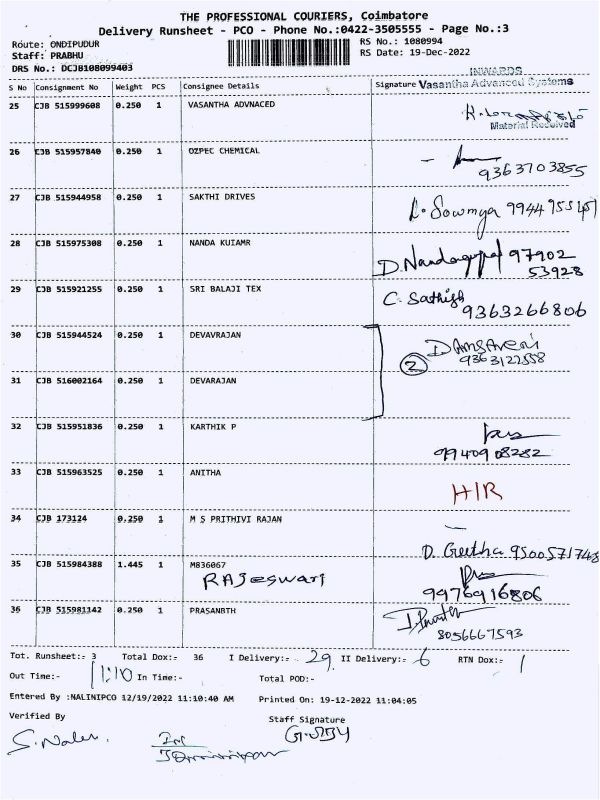 THE PROFESSIONAL COURIERS, Coimbatore
Delivery Runsheet - PCO - Phone No.:0422-3505555 - Page No.:3
Route: ONDIPUDUR
RS No.: 1080994
Staff: PRABHU
RS Date: 19-Dec-2022
DRS No.: DCJB108099403
INWARDS
S No Consignment No Weight PCS Consignee Details Signature Vasantha Advanced Systems
25 CJB 515999608 0.250 1 VASANTHA ADVNACED
Material Received
26 CJB 515957840 0.250 1 OZPEC CHEMICAL
9363703855
27 CJB 515944958 0.250 1 SAKTHI DRIVES
Sowmya
28 CJB 515975308 0.250 1 NANDA KUIAMR
D. Nandagopal 97902
53928
29 CJB 515921255 0.250 1 SRI BALAJI TEX
C. Sathish
9363266806
30 CJB 515944524 0.250 1 DEVAVRAJAN
9363122558
2
31 CJB 516002164 0.250 1 DEVARAJAN
32 CJB 515951836 0.250 1 KARTHIK P
9940908282
33 CJB 515963525 0.250 1 ANITHA
H/R
34 CJB 173124 0.250 1 M S PRITHIVI RAJAN
D. Geetha 9500571748
35 CJB 515984388 1.445 1 M836067
RAJeswari
9976916806
36 CJB 515981142 0.250 1 PRASANBTH
8056667593
Tot. Runsheet:- 3 Total Dox:- 36 I Delivery:- 29 II Delivery:- 6 RTN Dox:- 1
Out Time:- 11:10 In Time:- Total POD:-
Entered By :NALINIPCO 12/19/2022 11:10:40 AM Printed On: 19-12-2022 11:04:05
Verified By
Staff Signature